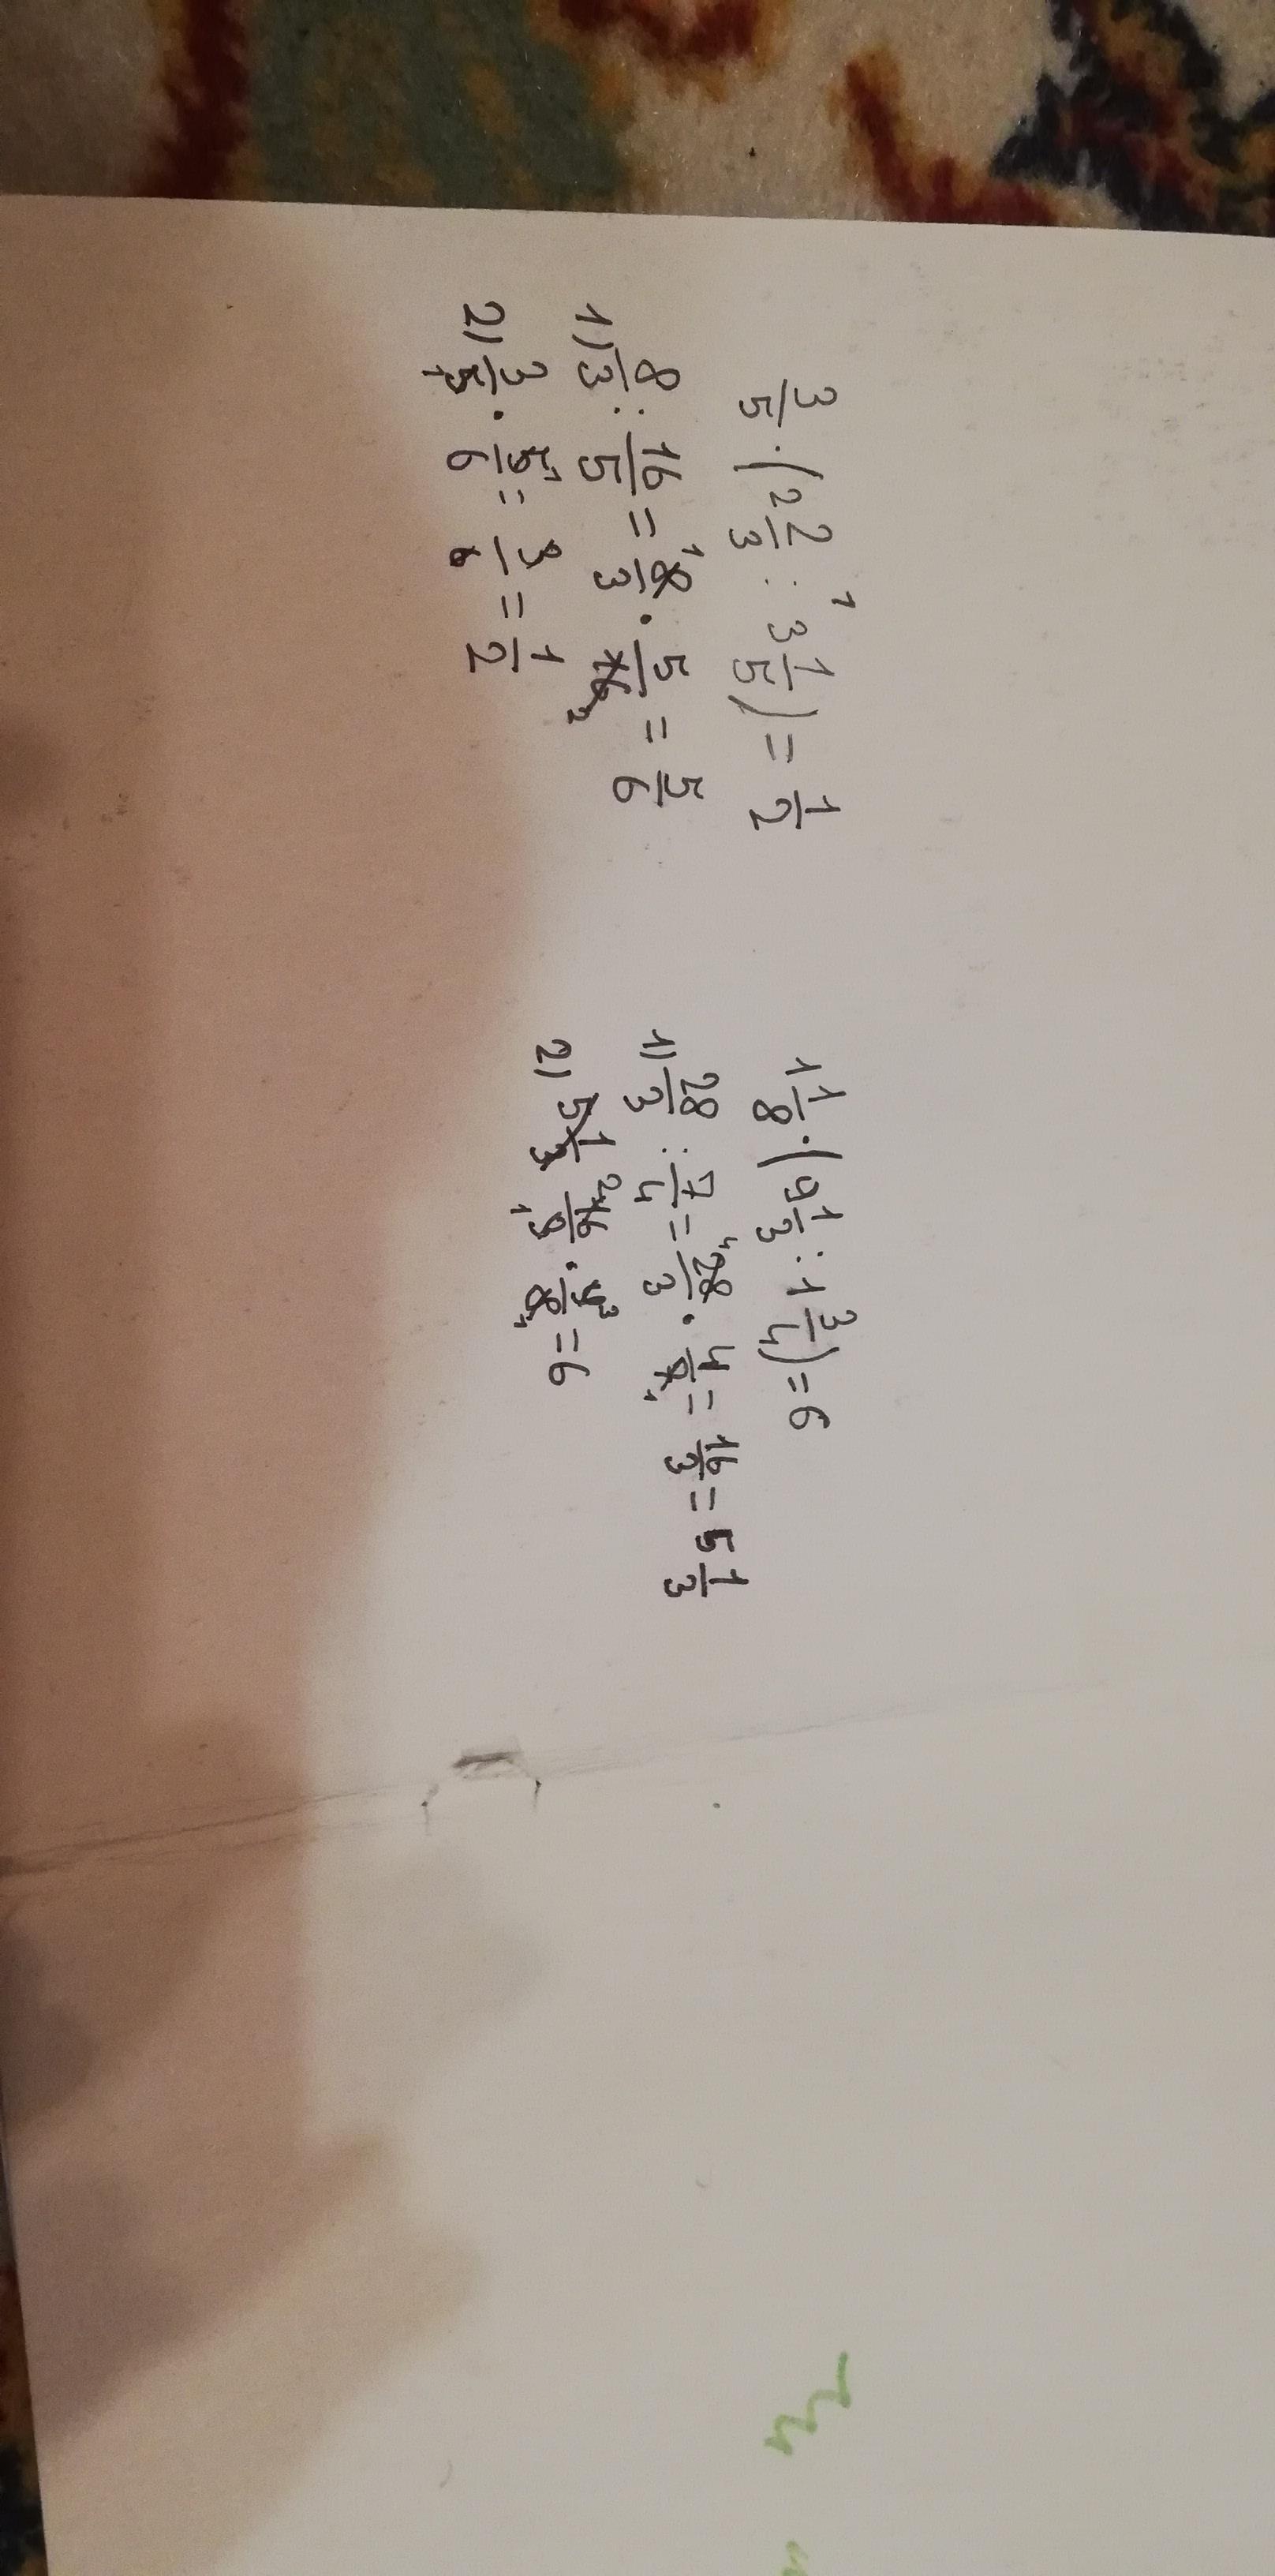 3/5 · (2 2/3 : 3 1/5) = 1/2
1) 8/3 : 16/5 = 8/3 · 5/16 = 5/6
2) 3/5 · 5/6 = 3/6 = 1/2
1 1/8 · (9 1/3 : 1 3/4) = 6
1) 28/3 : 7/4 = 28/3 · 4/7 = 16/3 = 5 1/3
2) 5 1/3 16/3 · 9/8 = 6